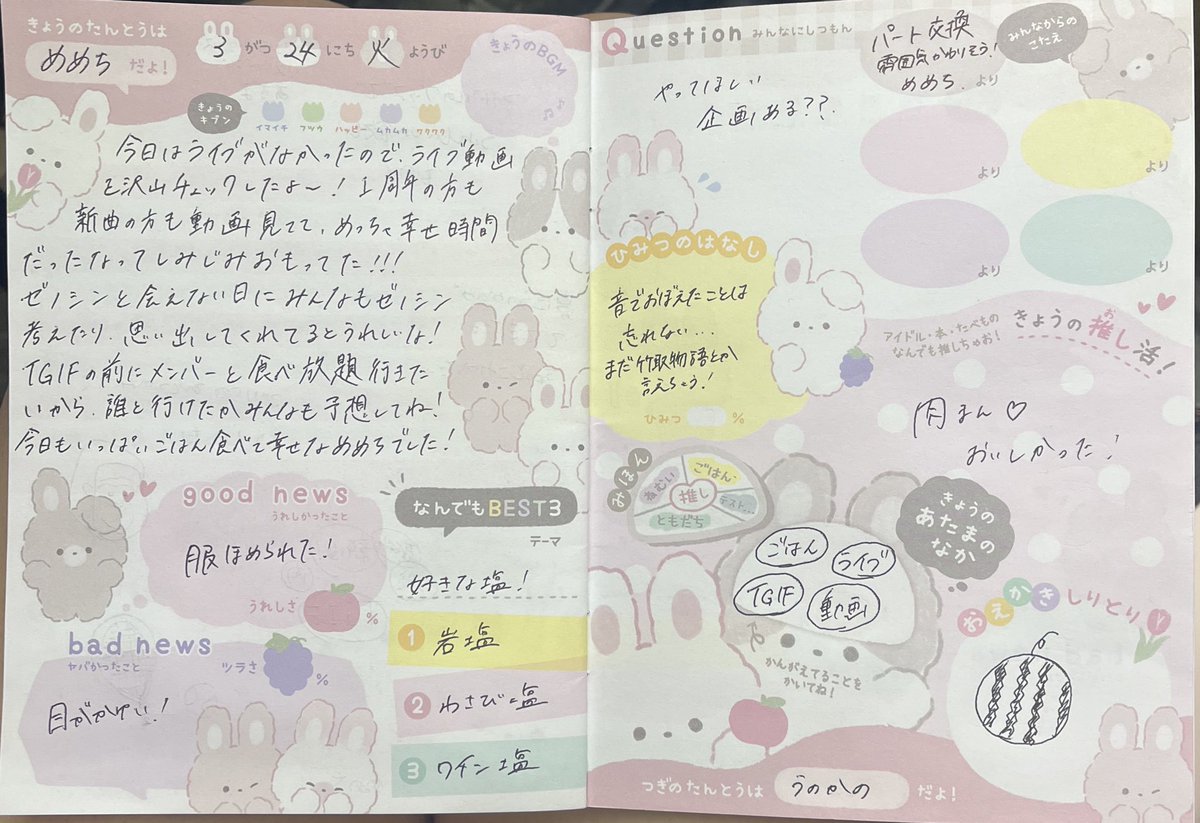 きょうのたんとうは
めめち だよ!
3 がつ 24 にち 火 ようび
きょうのBGM
きょうの
キブン
イマイチ フツウ ハッピー ムカムカ ワクワク
今日はライブがなかったので、ライブ動画
を沢山チェックしたよ〜!1周年の方も
新曲の方も動画見てて、めっちゃ幸せ時間
だったなってしみじみおもってた!!!
ゼノシンと会えない日にみんなもゼノシン
考えたり、思い出してくれてるとうれしいな!
TGIFの前にメンバーと食べ放題行きた
いから、誰と行けたかみんなも予想してね!
今日もいっぱいごはん食べて幸せなめめちでした!
good news
うれしかったこと
服ほめられた!
うれしさ %
bad news
ヤバかったこと
ツラさ %
目がかゆい!
なんでもBEST3
テーマ
好きな塩!
1 岩塩
2 わさび塩
3 ワチン塩
Question みんなにしつもん
やってほしい
企画ある??
みんなからの
こたえ
パート交換
雰囲気かわりそう!
めめち より
より
より
より
より
ひみつのはなし
音でおぼえたことは
忘れない...
まだ竹取物語とか
言えちゃう!
ひみつ %
アイドル・本・たべもの
なんでも推しちゃお!
きょうの推し活!
お
肉まん♡
おいしかった!
みほん
ねむい
ごはん
推し
テスト...
ともだち
きょうの
あたまの
なか
ごはん
ライブ
TGIF
動画
かんがえてることを
かいてね!
おえかきしりとり
つぎのたんとうは うのかの だよ!